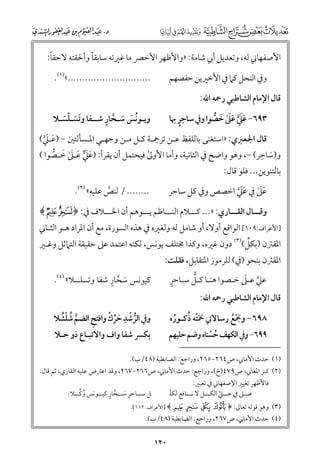 تعديلات بعض شراح الشاطبية لأبياتها في الفرش د. عبد القيوم بن عبد الغفور السندي
الأصفهاني له، وتعديل أبي شامة: «والأظهر الأخصر ما غيرته سابقاً وألحقته لاحقاً:
وفي النحل كما في الأخيرين حفصهم ............................»(١).
قال الإمام الشاطبي رحمه الله:
٦٩٣- عَلَيَّ عَلَىٰ خَصُّوا وفي ساحِرٍ بها ويونس سحَّارٍ شفا وتسلسلا
قال الجعبري: «استغنى باللفظ عن ترجمة كل من وجهي المسألتين - (عَلَيَّ)
و(سَاحِر) -، وهو واضح في الثانية، وأما الأولىٰ فيحتمل أن يقرأ: (عَلَيَّ عَلَىٰ خَصُّوا)
بالتنوين... فلو قال:
عَلَىٰ في عَلَيَّ اخصص وفي كل ساحر ........ / لنصَّ عليه»(٢).
وقال القاري: «... كلام الناظم يوهم أن الخلاف في:
[الأعراف:١٠٩] الواقع أولا، أو شامل له ولغيره في هذه السورة، مع أن المراد هو الثاني
المقترن (بكل)(٣) دون غيره، وكذا مختلف يونس، لكنه اعتمد على حقيقة التماثل وغير
المقترن بنحو (في) للرموز المتقابل، فقلت:
عليَّ علـى خصـوا هنا كل ساحـر كيونس سَحَّارٍ شفا وتسلسلا»(٤).
قال الإمام الشاطبي رحمه الله:
٦٩٨- وجمع رسالاتي حمته ذكوره وفي الرشد حرك وافتح الضم شلشلا
٦٩٩- وفي الكهف حسناه وضم حليهم بكسر شفا واف والاتباع ذو حلا
(١) حدث الأماني، ص٢٦٤-٢٦٥، وراجع: الضابطية (٤٨/ ب).
(٢) كنز المعاني، ص٤٧٩(خ)، وراجع: حدث الأماني، ص٢٦٦-٢٦٧، وقد اعترض عليه القاري، ثم قال:
فالأظهر تغيير الإصفهاني في تعبيره:
(٣) وهو قوله تعالى: [الأعراف: ١١٢].
(٤) حدث الأماني، ص٢٦٧، وراجع: الضابطية (٤٨/ ب).
١٢٠